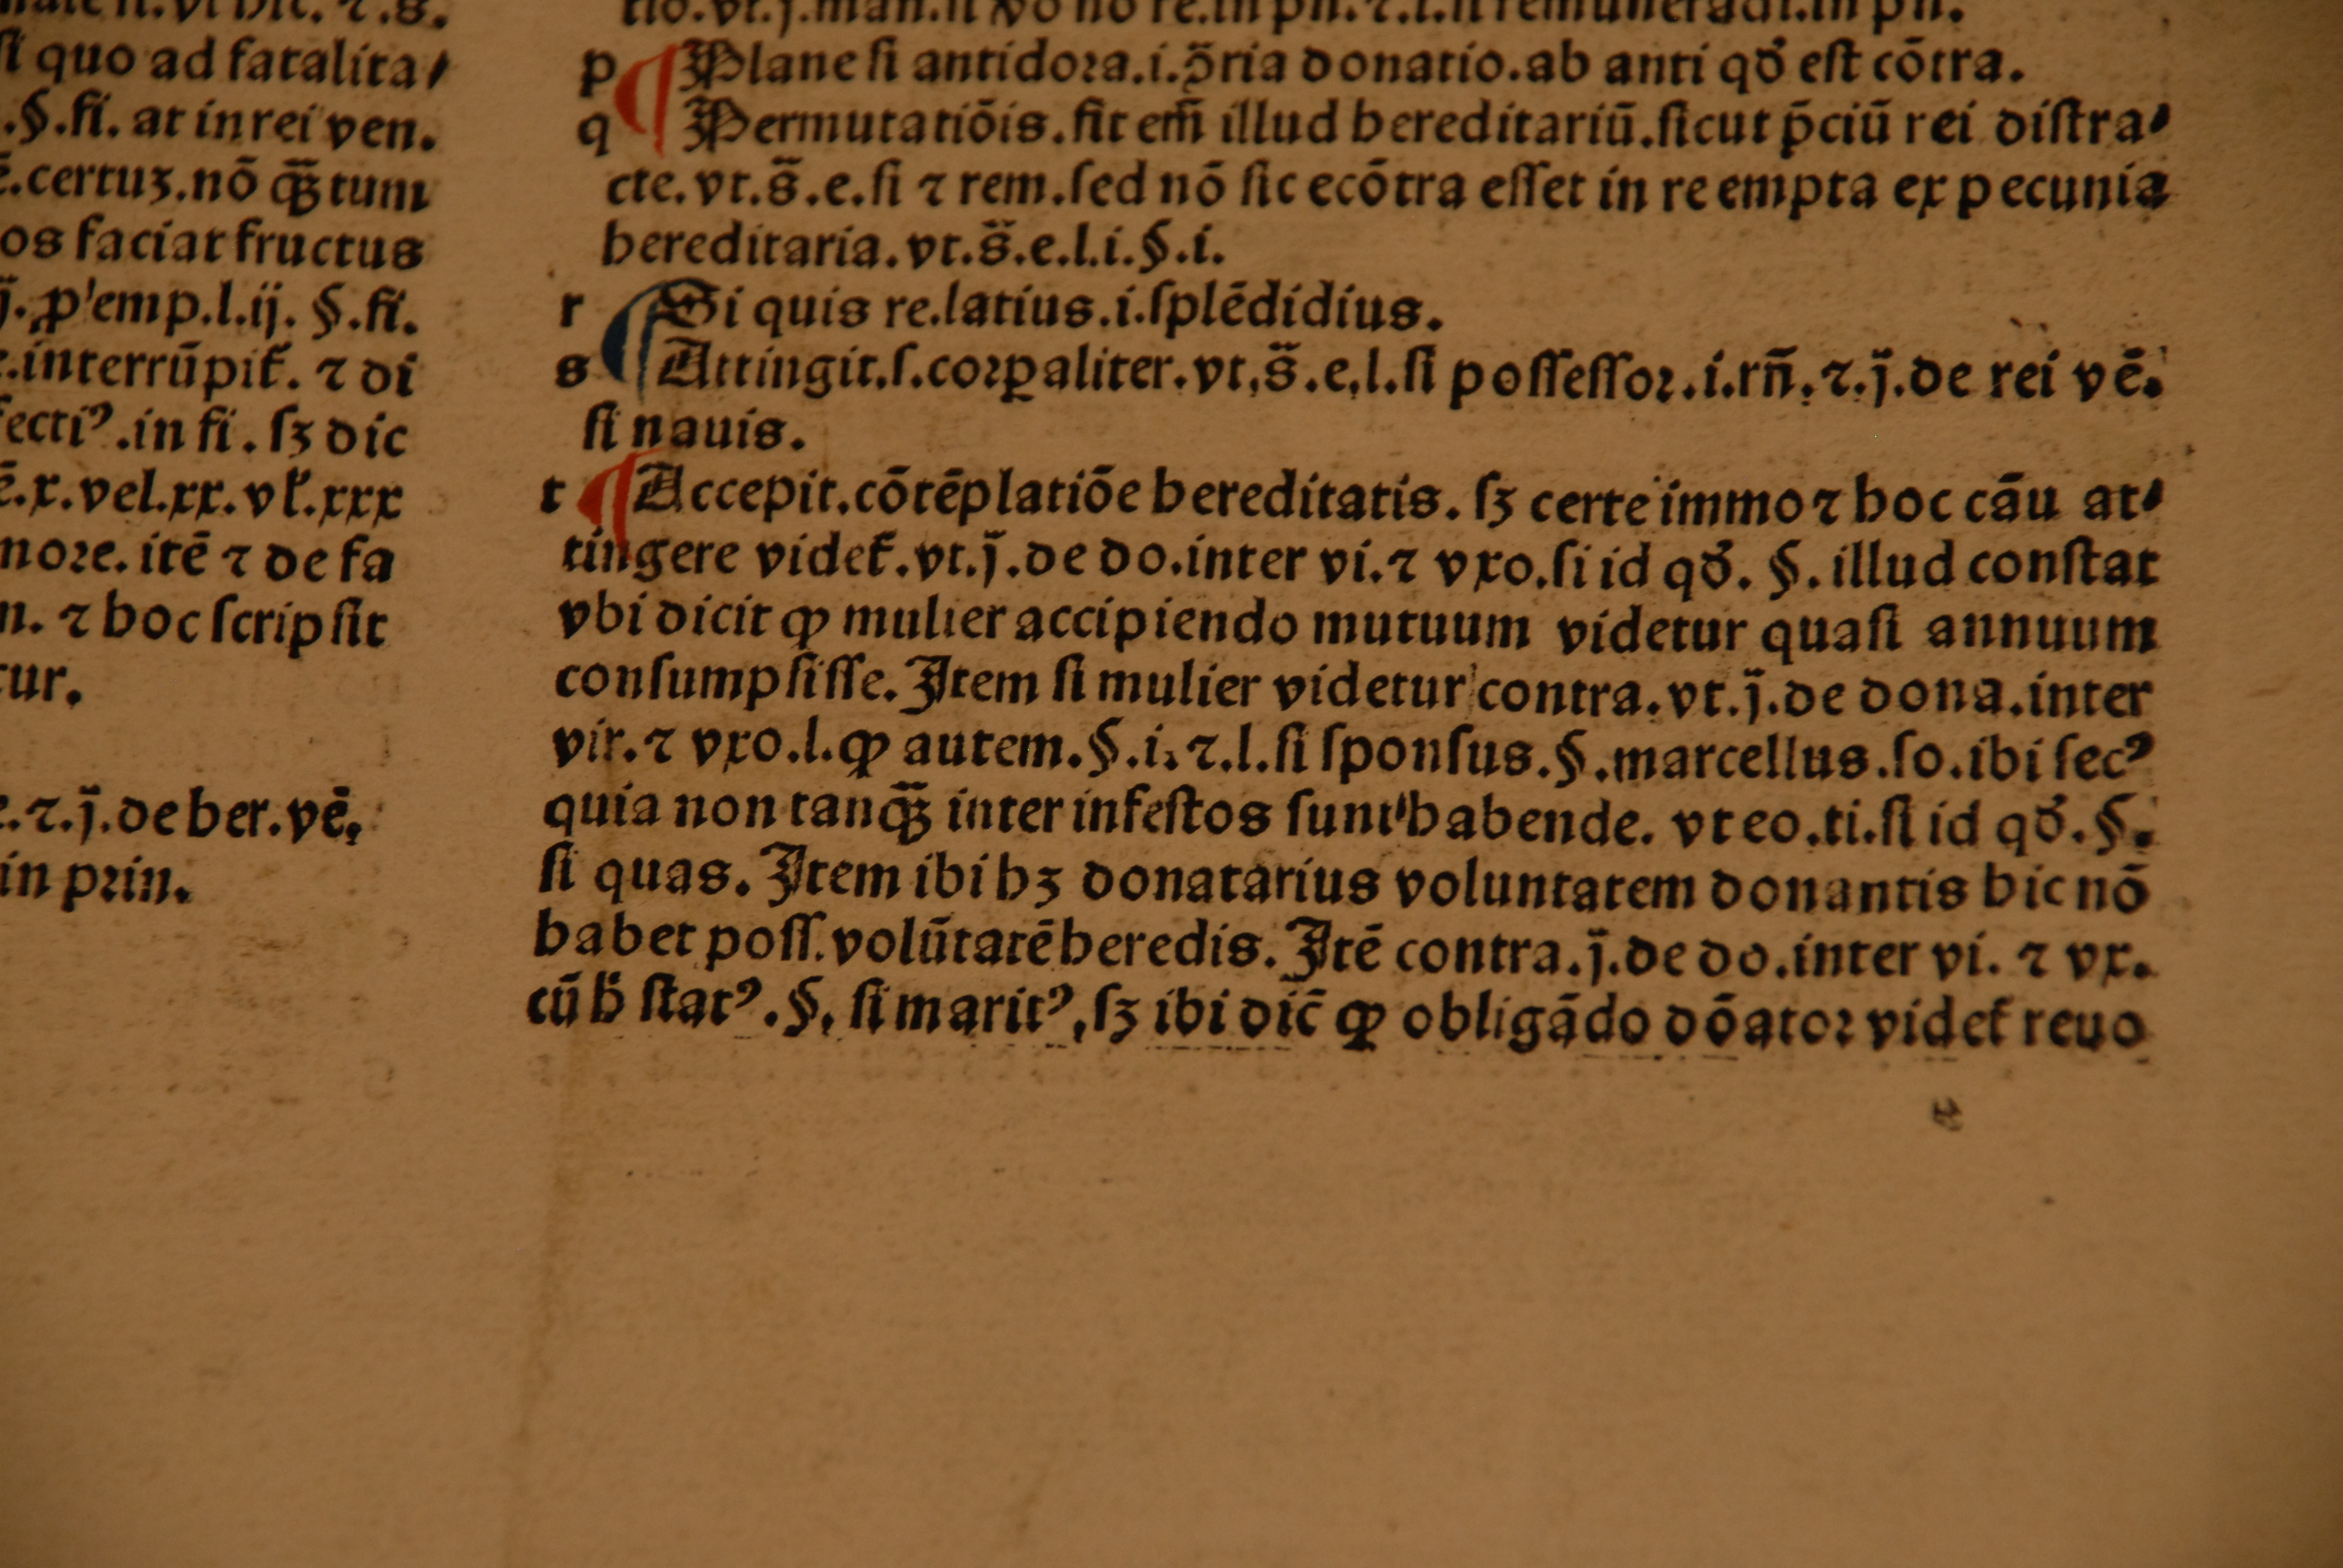 ſi quo ad fatalita/
.§.fi. at in rei ven.
ē.certuꝫ.nō q̄ꝫtum
os faciat fructus
ȷ̈.ꝓ'emp.l.ij. §.fi.
.interrūpit᷒. ⁊ di
fectiꝰ.in fi. ſꝫ dic
ē.x.vel.xx.vł.xxx
more. itē ⁊ de fa
n. ⁊ hoc ſcripſit
tur.
.⁊.ȷ̈.de her.vē.
in prin.
p ¶ Plane ſi antidora.i.ꝓ̄ria donatio.ab anti qđ eſt cōtra.
q ¶ Permutatiōis.fit em̄ illud hereditariū.ſicut p̄ciū rei diſtra/
cte.vt.s̈.e.ſi ⁊ rem.ſed nō ſic ecōtra eſſet in re empta ex pecunia
hereditaria.vt.s̈.e.l.i.§.i.
r ¶ Si quis re.latius.i.ſplēdidius.
s Attingit.ſ.corꝑaliter.vt.s̈.e.l.ſi poſſeſſor.i.rn̄.⁊.ȷ̈.de rei vē.
ſi nauis.
t ¶ Accepit.cōtēplatiōe hereditatis. ſꝫ certe immo ⁊ hoc cāu at/
tingere videt᷒.vt.ȷ̈.de do.inter vi.⁊ vxo.ſi id qđ. §. illud conſtat
vbi dicit ꝙ mulier accipiendo mutuum videtur quaſi annuum
conſumpſiſſe. Item ſi mulier videtur contra.vt.ȷ̈.de dona.inter
vir.⁊ vxo.l.ꝙ autem.§.i.⁊.l.ſi ſponſus.§.marcellus.ſo.ibi ſecꝰ
quia non tanq̄ꝫ inter infeſtos ſunt habende. vt eo.ti.ſi id qđ.§.
ſi quas. Item ibi hꝫ donatarius voluntatem donantis hic nō
habet poſſ.volūtatē heredis. Itē contra.ȷ̈.de do.inter vi. ⁊ vx.
cū h̄ ſtatꝰ.§. ſi maritꝰ.ſꝫ ibi dic̄ ꝙ obligādo dōator videt᷒ reuo